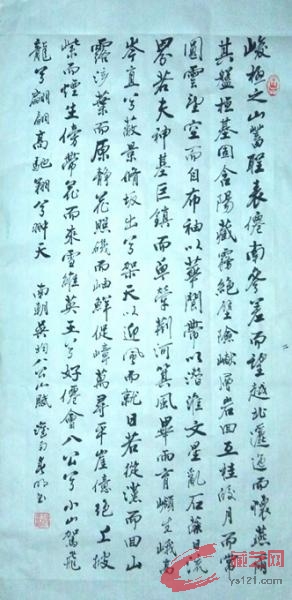 峻極之山蓄聖表僊南參差而望越北邐迤而懷燕爾
其盤桓基固含陽藏霧絕壁險巇層岩回互桂皎月而常
圓雲望空而自布袖以華閬帶以潛淮文星亂石藻日流
界若夫神基巨鎮而卓犖荊河箕風畢雨育嶺生峨高
岑直兮蔽景脩坂出兮架天以迎風而就日若從漢而回山
露泫葉而原靜花照磯而岫鮮促嶂萬尋平崖億絕上披
紫而煙生傍帶花而來雪維英王兮好僊會八公兮小山駕飛
龍兮翩翩高馳翔兮翀天 南朝吳均八公山賦 書
ys121.com